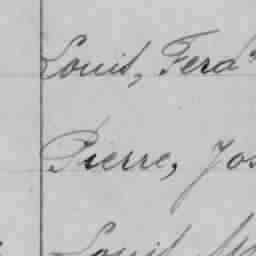 Louis, Ferd
Pierre, Jos
Louis